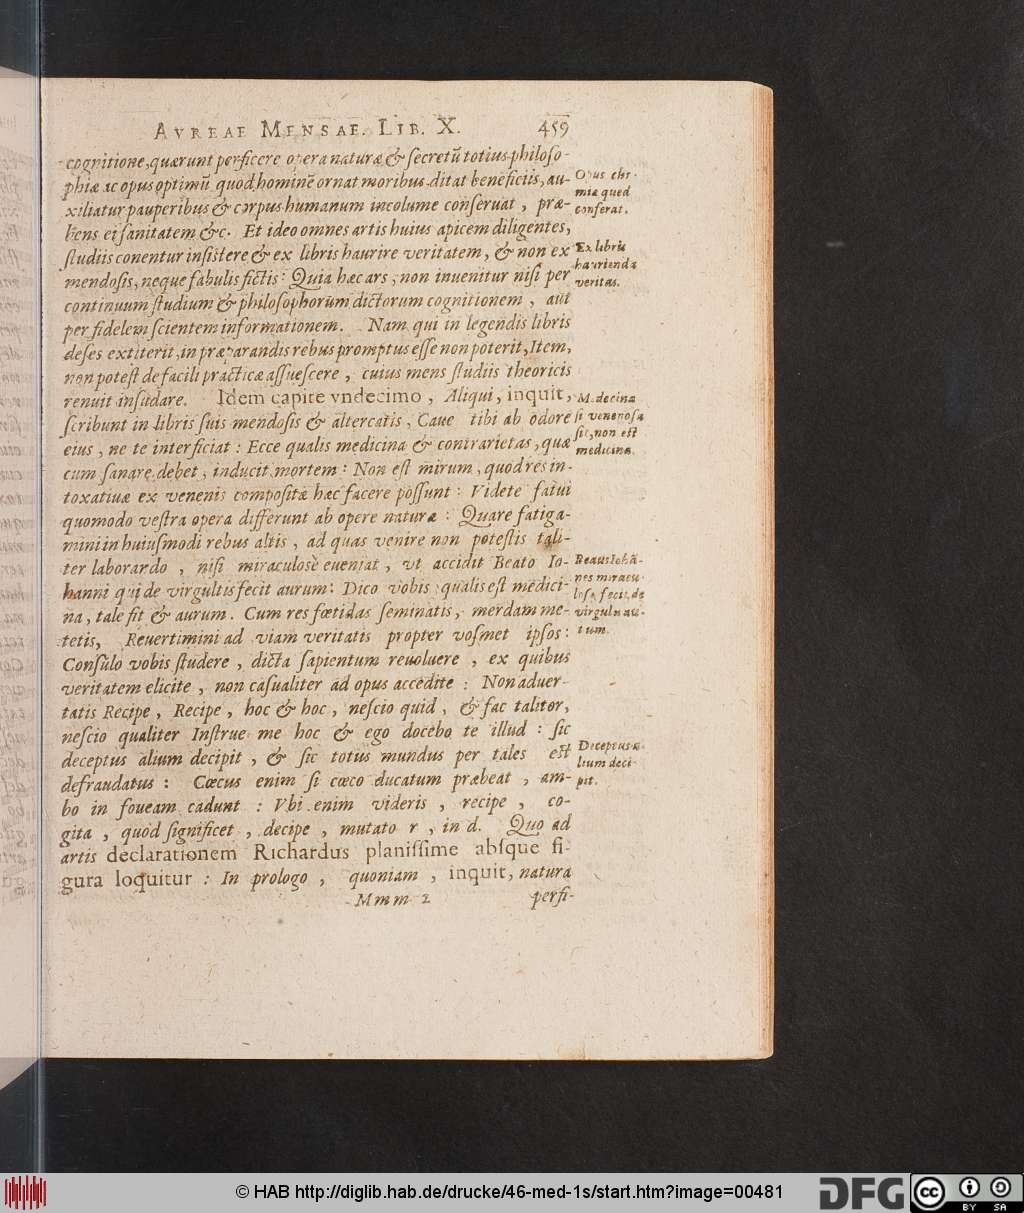 AVREAE MENSAE. LIB. X. 459
cognitione, quærunt perficere opera naturæ & secretũ totius philoso-
phiæ ac opus optimũ quod hominẽ ornat moribus ditat beneficiis, au-
xiliatur pauperibus & corpus humanum incolume conseruat, præ-
bens ei sanitatem &c. Et ideo omnes artis huius apicem diligentes,
studiis conentur insistere & ex libris haurire veritatem, & non ex
mendosis, neque fabulis fictis: Quia hæc ars, non inuenitur nisi per
continuum studium & philosophorum dictorum cognitionem, aut
per fidelem scientem informationem. Nam qui in legendis libris
deses extiterit, in præparandis rebus promptus esse non poterit, Item,
non potest de facili practicæ assuescere, cuius mens studiis theoricis
renuit insudare. Idem capite vndecimo, Aliqui, inquit,
scribunt in libris suis mendosis & altercatis, Caue tibi ab odore
eius, ne te interficiat: Ecce qualis medicina & contrarietas, quæ
cum sanare debet, inducit mortem: Non est mirum, quod res in-
toxatiuæ ex venenis compositæ hæc facere possunt: Videte fatui
quomodo vestra opera differunt ab opere naturæ: Quare fatiga-
mini in huiusmodi rebus altis, ad quas venire non potestis tali-
ter laborardo, nisi miraculosè eueniat, vt accidit Beato Io-
hanni qui de virgultis fecit aurum: Dico vobis qualis est medici-
na, tale fit & aurum. Cum res fœtidas seminatis, merdam me-
tetis, Reuertimini ad viam veritatis propter vosmet ipsos:
Consulo vobis studere, dicta sapientum reuoluere, ex quibus
veritatem elicite, non casualiter ad opus accedite: Non aduer-
tatis Recipe, Recipe, hoc & hoc, nescio quid, & fac taliter,
nescio qualiter Instrue me hoc & ego docebo te illud: sic
deceptus alium decipit, & sic totus mundus per tales est
defraudatus: Cœcus enim si cœco ducatum præbeat, am-
bo in foueam cadunt: Vbi enim videris, recipe, co-
gita, quod significet, decipe, mutato r, in d. Quo ad
artis declarationem Richardus planissime absque fi-
gura loquitur: In prologo, quoniam, inquit, natura
Mmm 2 perfi-
Opus chy-
miæ quod
conserat.
Ex libris
haurienda
veritas.
Medicina
si venenosa
sit, non est
medicina.
Beatus Iohã-
nes miracu-
losè fecit de
virgulis au-
rum.
Deceptus a-
lium deci-
pit.
© HAB http://diglib.hab.de/drucke/46-med-1s/start.htm?image=00481
DFG
cc BY SA